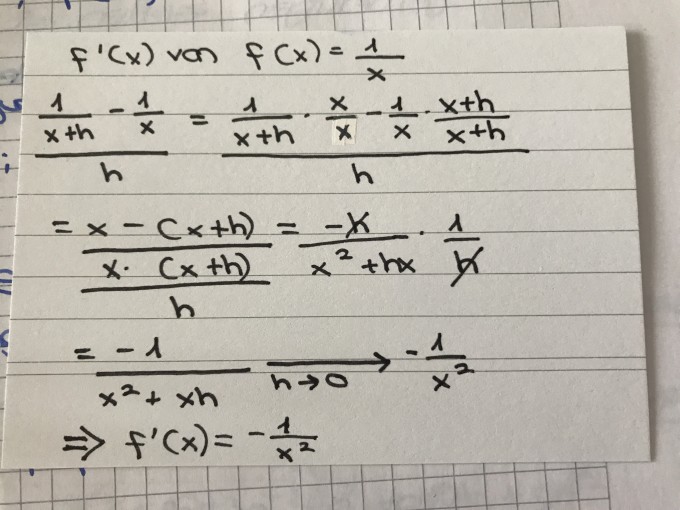 f'(x) von f(x) = 1/x
(1/(x+h) - 1/x)/h = (1/(x+h) · x/x - 1/x · (x+h)/(x+h))/h
= ((x - (x+h))/(x · (x+h)))/h = -h/(x² + hx) · 1/h
= -1/(x² + xh) ⟶ h→0 -1/x²
⇒ f'(x) = -1/x²